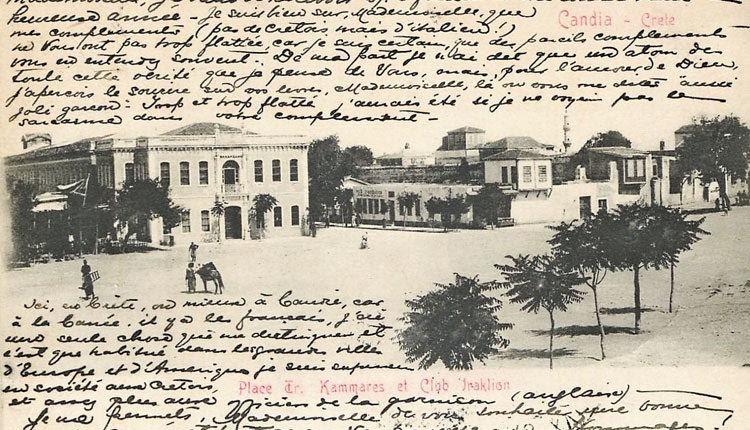 heureuse année - je suis bien sur, Mademoiselle, que
Candia - Crete
mes complements (pas de Cretois mais d'italien!)
ne Vous ont pas trop flattée, car je suis certain, que des pareils complements
vous en entendez souvent. De ma part je n'ai dit que un atom des
toute cette vérité que je pense de Vous, mais, pour l'amour de Dieu,
j'aperçois le sourire sur vos levres, Mademoiselle, là ou vous me dites "aussi
joli garçon". Trop et trop flatté j'aurais été si je ne voyais pas le
sarcasme dans votre complement -
Ici, en Crète, ou mieux à Candie, car
à la Canée, il y a les français, j'ai
une seule chose que me distingue, et
c'est que habitué dans les grands ville
d'Europe et d'Amerique je suis
en société aux Cretois
Place Tr. Kammares et Club Iraklion
et assez plus aux de la garnison (anglaise)
Je me permets, Mademoiselle de vous souhaiter une bonne